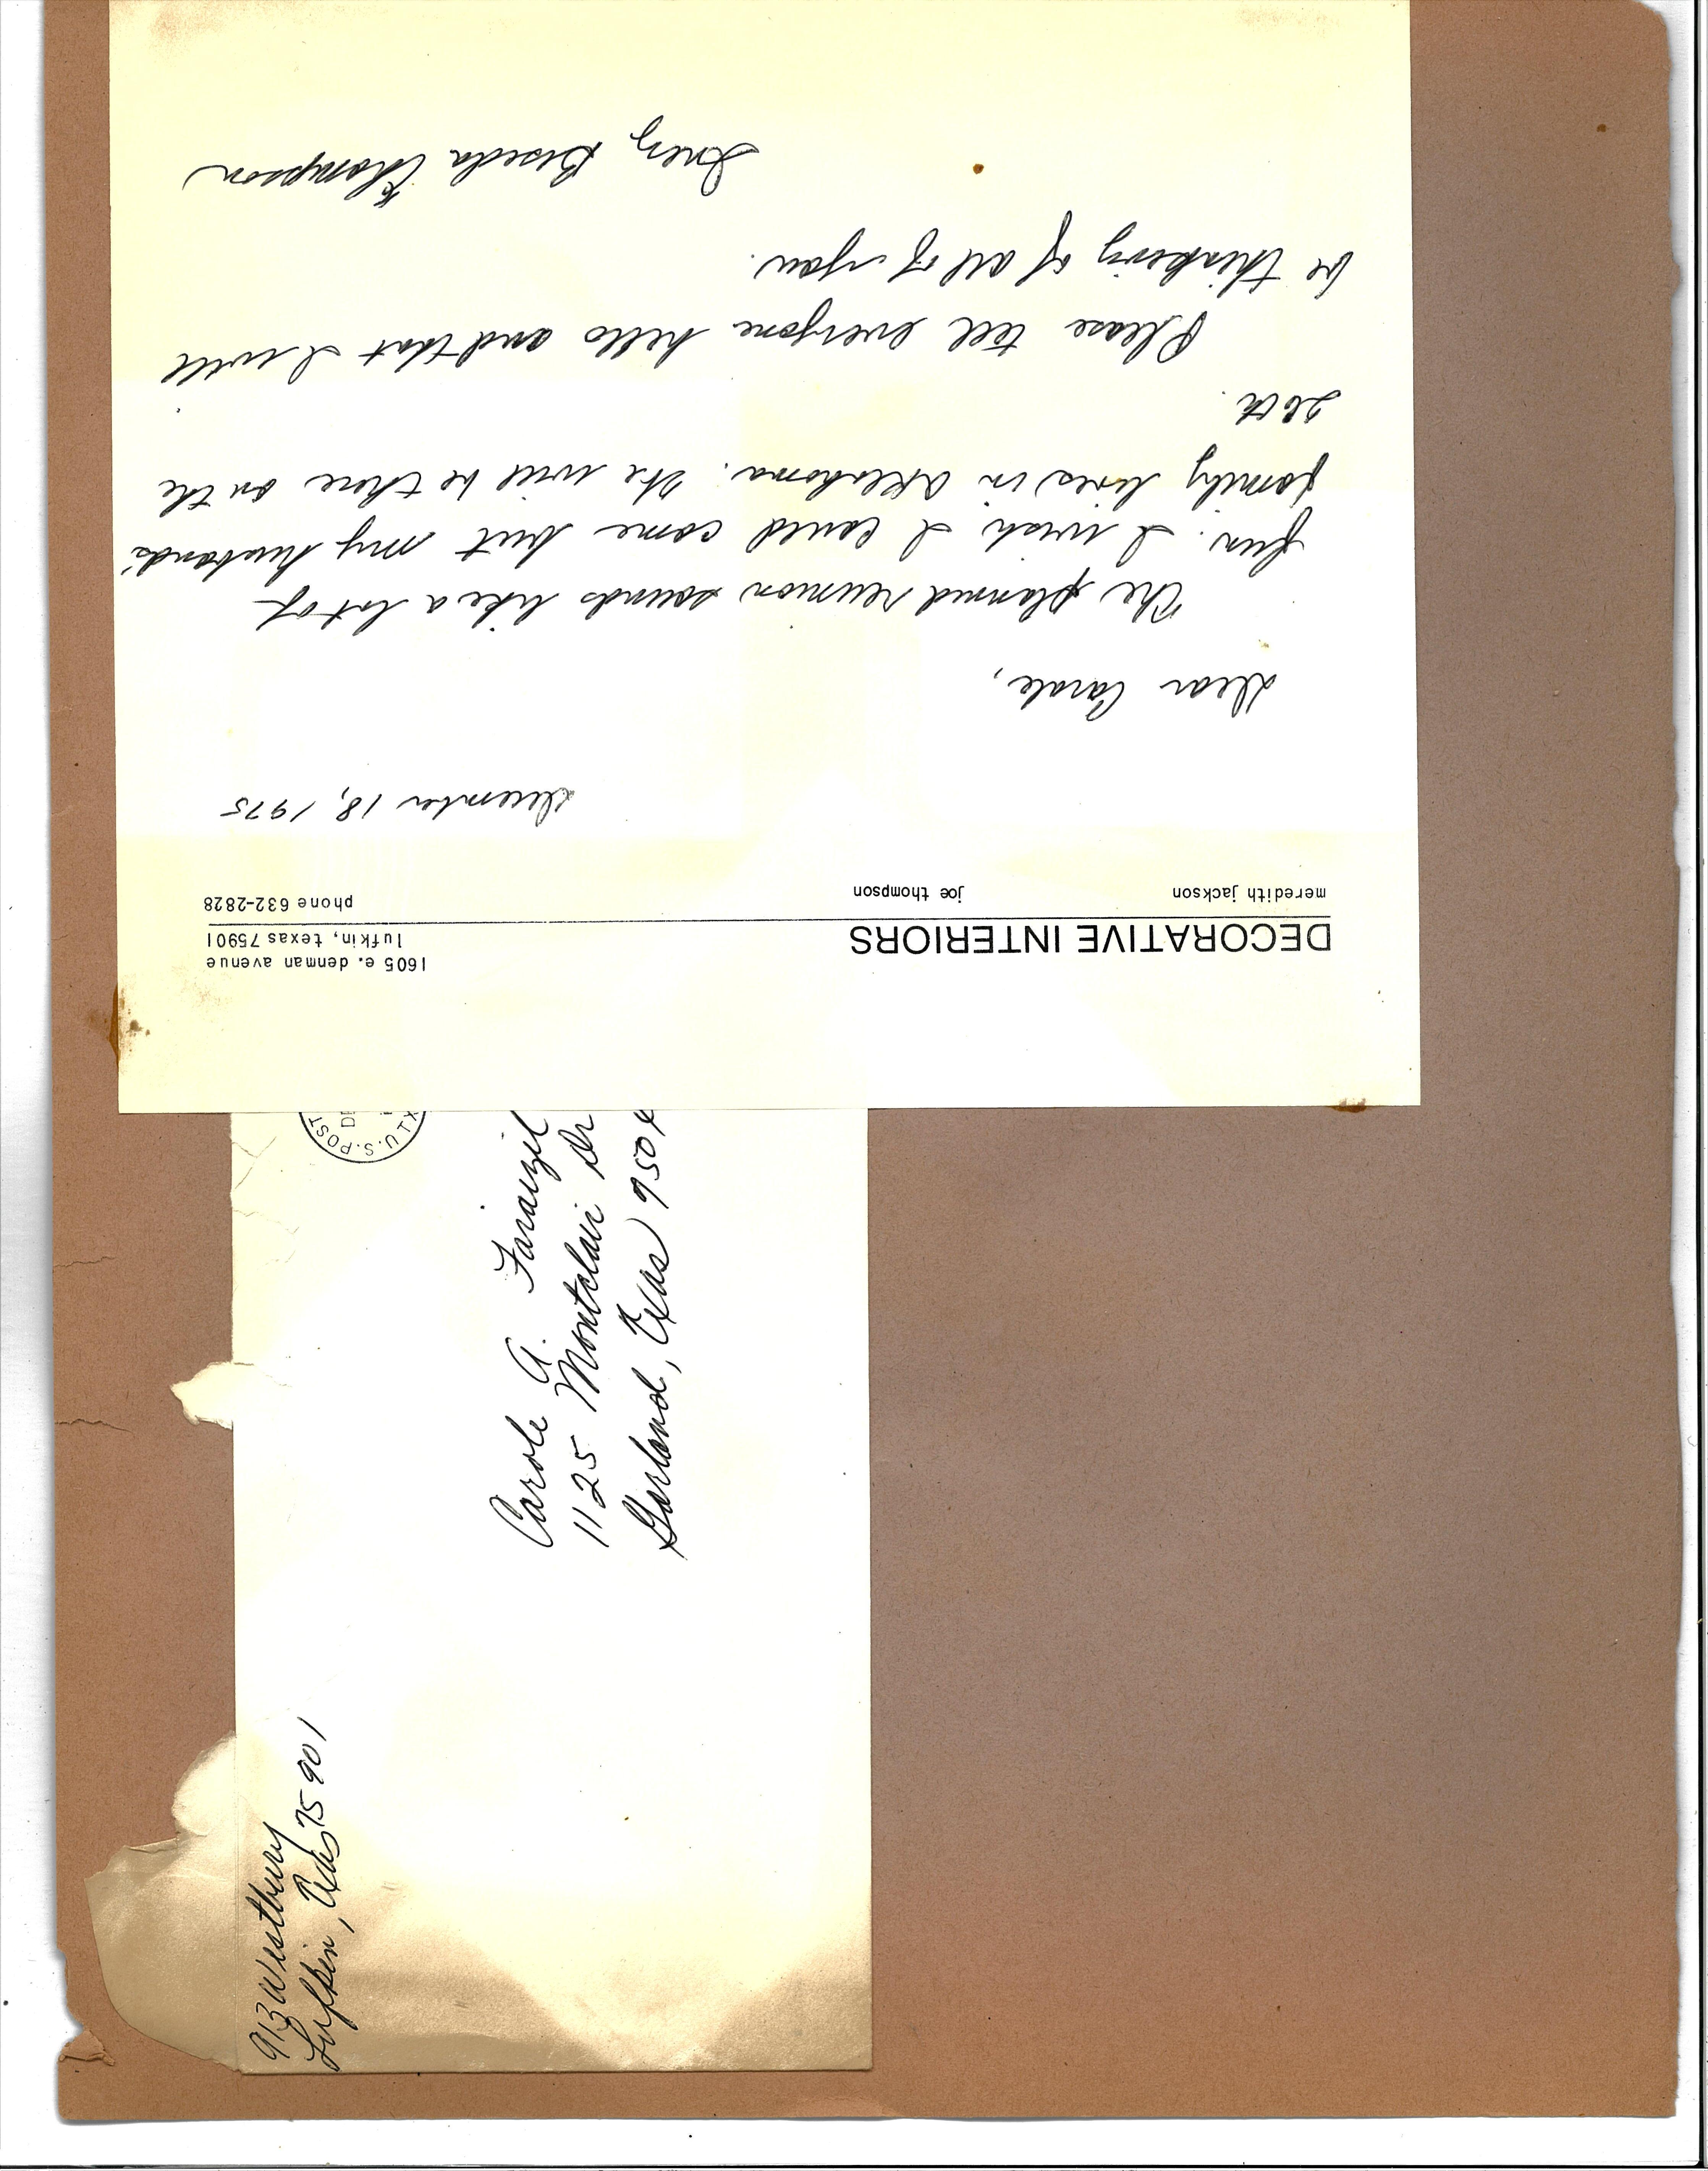 DECORATIVE INTERIORS
1605 e. denman avenue
lufkin, texas 75901
meredith jackson
joe thompson
phone 632-2828
December 18, 1975
Dear Carole,
The planned reunion sounds like a lot of
fun. I wish I could come but my husbands'
family lives in Oklahoma. We will be there on the
26th.
Please tell everyone hello and that I will
be thinking of all of you.
Inez Biseda Thompson
913 Westbury
Lufkin, Texas 75901
Carole A.
1125 Montclair Dr
Garland, Texas 7504
U.S. POST